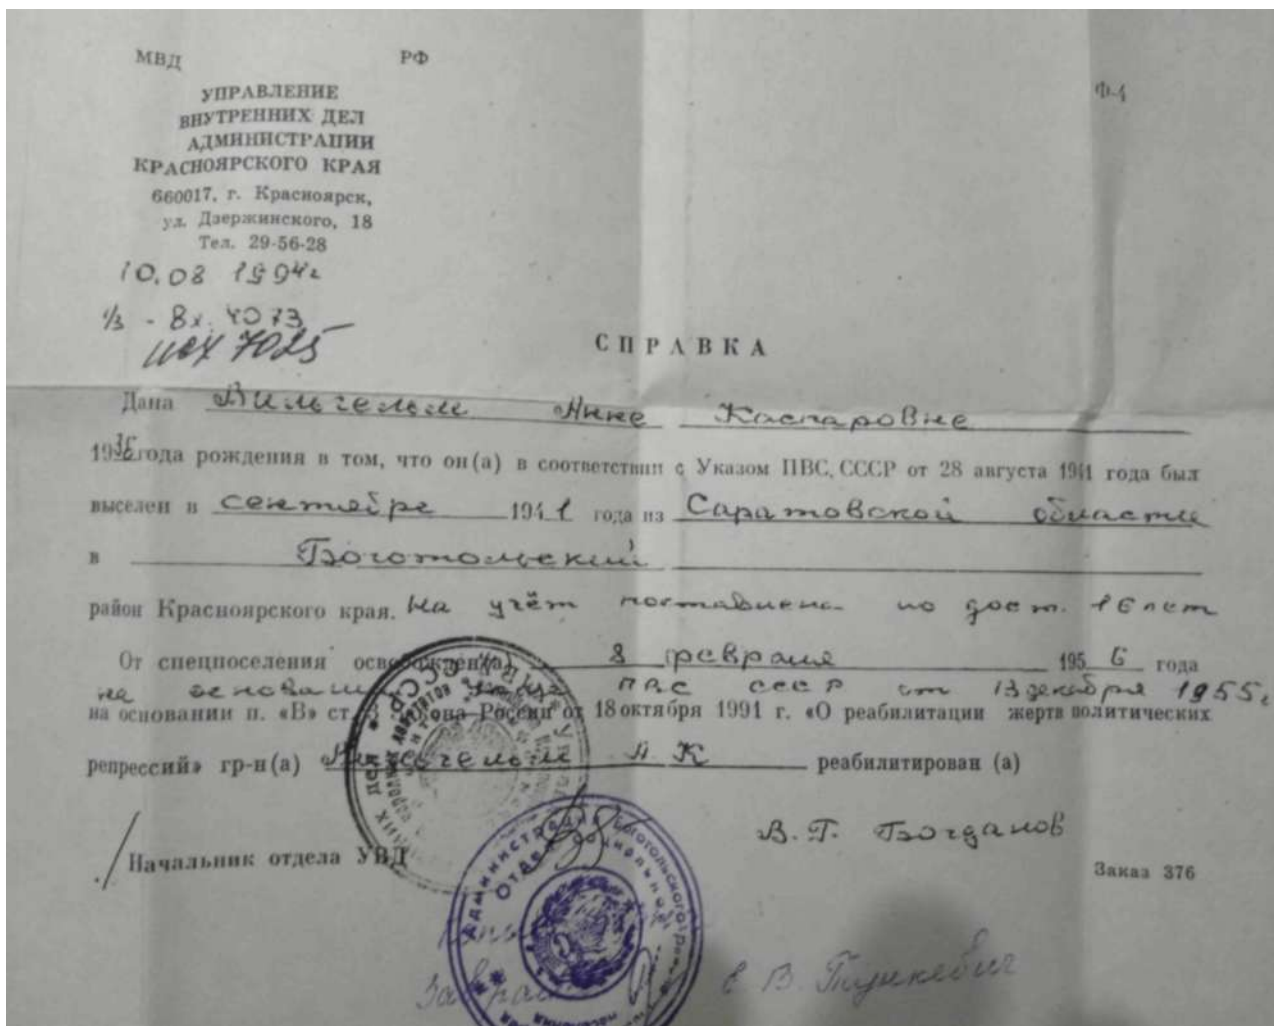 МВД РФ
Ф-4
УПРАВЛЕНИЕ
ВНУТРЕННИХ ДЕЛ
АДМИНИСТРАЦИИ
КРАСНОЯРСКОГО КРАЯ
660017, г. Красноярск,
ул. Дзержинского, 18
Тел. 29-56-28
10.08 1994г
1/3 - Вх. 4073
исх 7025
СПРАВКА
Дана Вильгельм Анне Каспаровне
19 года рождения в том, что он(а) в соответствии с Указом ПВС, СССР от 28 августа 1941 года был
выселен в сентябре 1941 года из Саратовской области
в Боготольский
район Красноярского края. На учёт поставлена по дост. 16 лет
От спецпоселения освобожден(а) 8 февраля 1956 года
на основании Указа ПВС СССР от 13 декабря 1955г
на основании п. «В» ст. Закона России от 18 октября 1991 г. «О реабилитации жертв политических
репрессий» гр-н(а) Вильгельм А К реабилитирован (а)
В. Г. Богданов
Начальник отдела УВД
Заказ 376
Администрация Боготольского района
Отдел социальной
населения
Е В. Тункевич